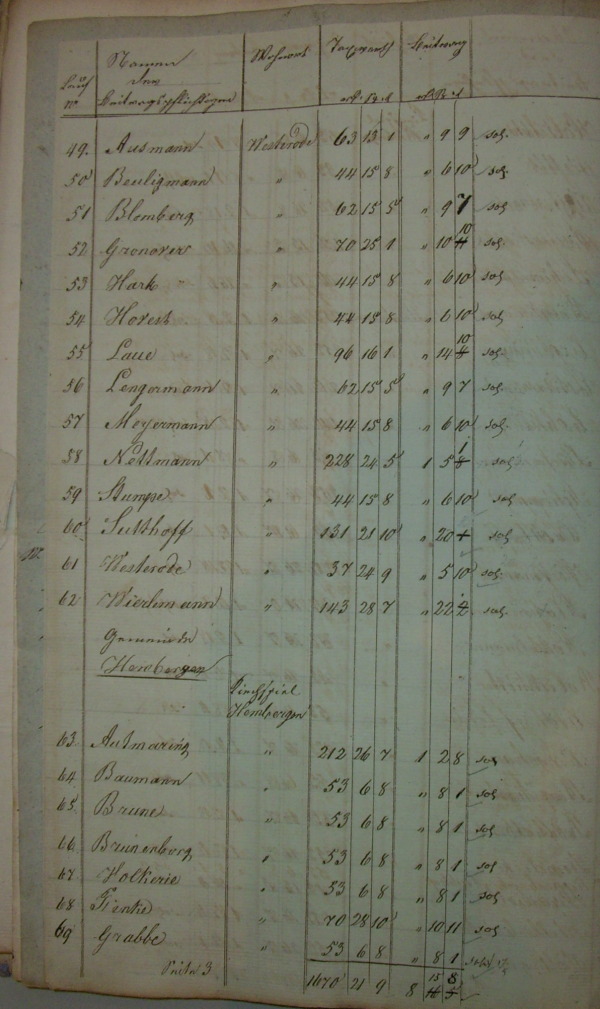 Lauf Namen Wohnort Taxwerth Beitrag
der
No Beitragspflichtigen
49. Ausmann Westerode 63 13 1 " 9 9 sol.
50 Beuligmann " 44 15 8 " 6 10 sol.
51 Blomberg " 62 15 5 " 9 7 sol
52 Gronover " 70 25 1 " 10 10 sol.
53 Hark " 44 15 8 " 6 10 sol.
54 Horest " 44 15 8 " 6 10 sol.
55 Laue " 96 16 1 " 14 10 sol.
56 Lengermann " 62 15 5 " 9 7 sol.
57 Meyermann " 44 15 8 " 6 10 sol.
58 Nettmann " 228 24 5 1 5 1 sol.
59 Stumpe " 44 15 8 " 6 10 sol
60 Sutthoff " 131 21 10 " 20 sol
61 Westerode " 37 24 9 " 5 10 sol.
62 Wierlemann " 143 28 7 " 22 sol.
Gemeinde
Hembergen
Kirchspiel
Hembergen
63. Autmaring " 212 26 7 1 2 8 sol
64. Baumann " 53 6 8 " 8 1 sol
65. Brune " 53 6 8 " 8 1 sol
66 Brunenborg " 53 6 8 " 8 1 sol
67 Holkerie " 53 6 8 " 8 1 sol
68 Fienke " 70 28 10 " 10 11 sol
69 Grabbe " 53 6 8 " 8 1
Seite 3 1670 21 9 8 15 8